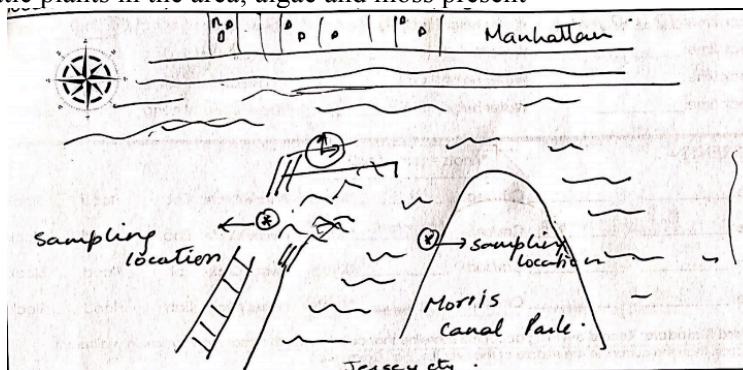 tic plants in the area, algae and moss present
Manhattan
Sampling
location
Sampling
location
Morris
Canal Park.
Jersey city.